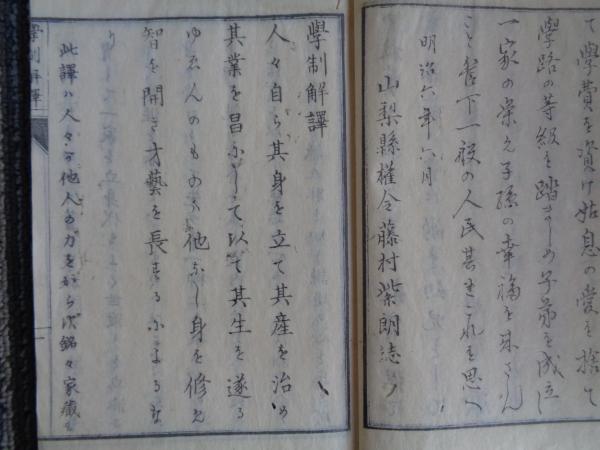 て學費を資け姑息の愛を捨て
學路の等級を踏ましめ子弟を成立し
一家の榮え子孫の幸福を來さん
こと管下一般の人民其幸これを思へ
明治六年六月
山梨縣權令藤村紫朗誌
學制解譯
人々自ら其身を立て其産を治め
其業を昌にして以て其生を遂る
ゆゑんのものは他なし身を修め
智を開き才藝を長するによるな
り
此譯ハ人々が他人の力をからず銘々家蔵を
學制解譯